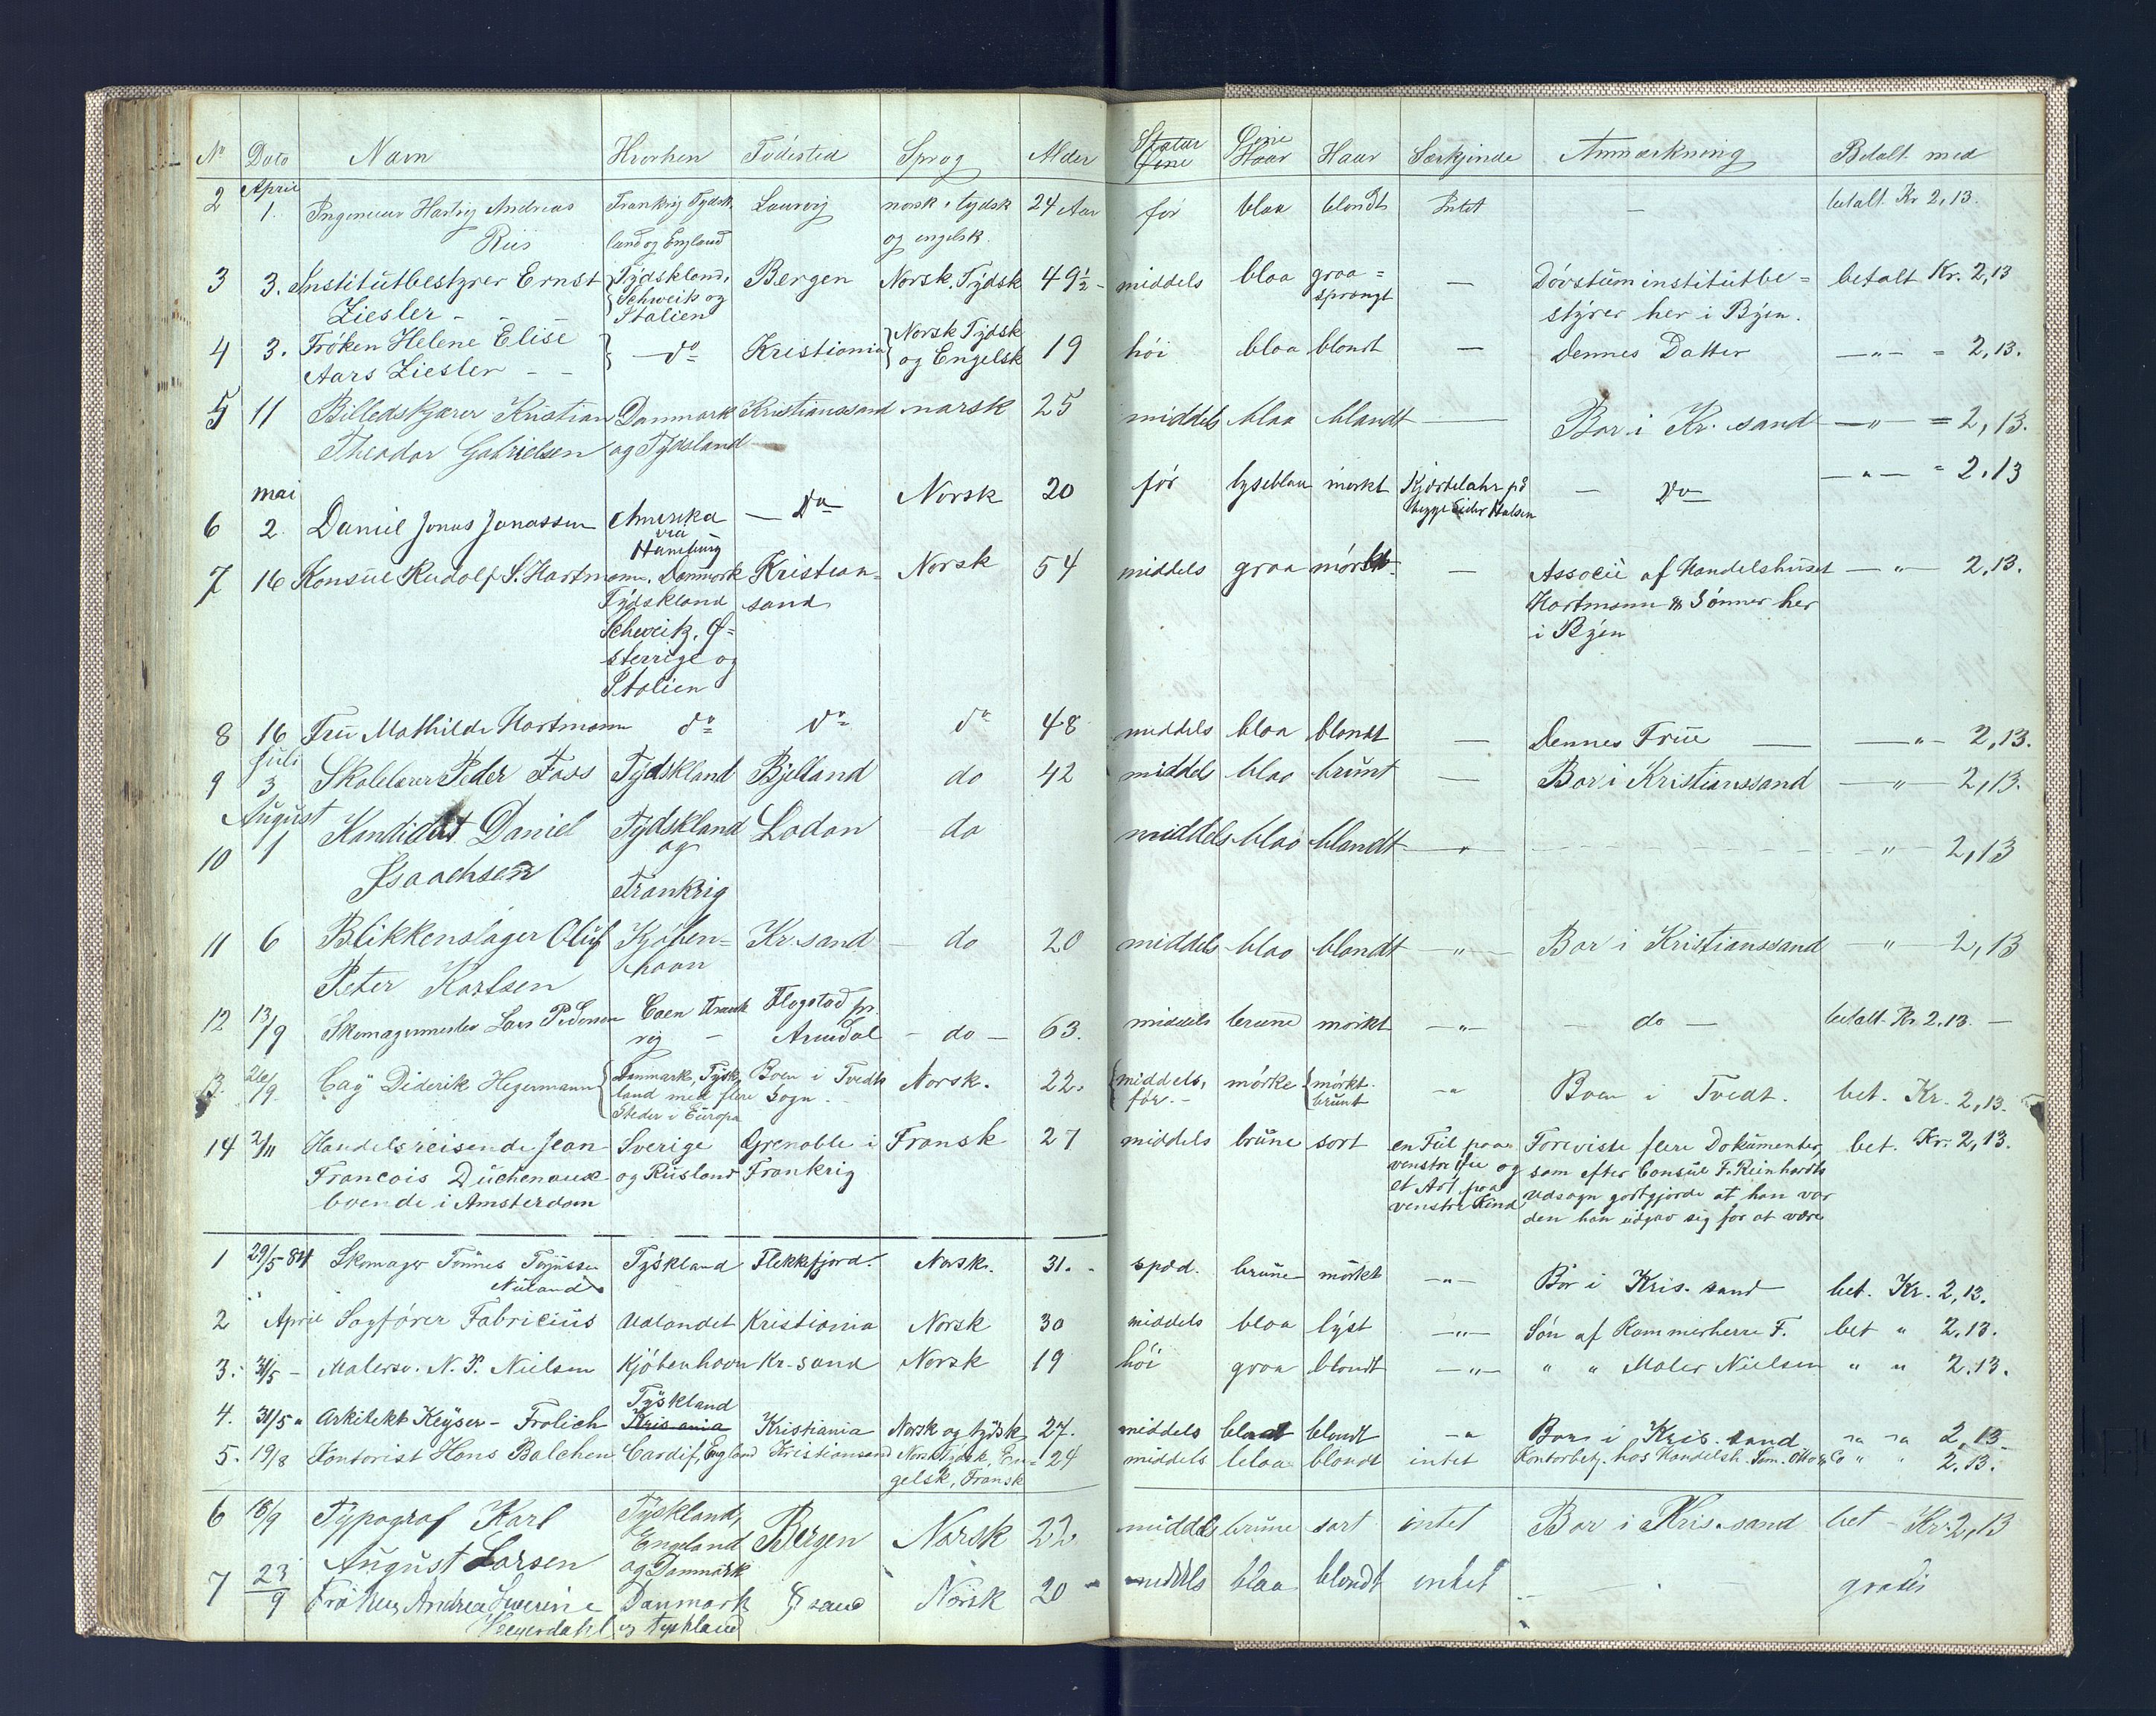 No Dato Navn Hvorhen Födested Sprog Alder Statur Öine Öine Haar Haar Særkjende Anmærkning Betalt med
2 April 1. Ingenieur Hartvig Andreas Frankrig Tydsk Laurvig norsk, tydsk 24 Aar før blaa blondt Intet — betalt Kr 2,13.
Riis land og England og engelsk.
3 3. Institütbestyrer Ernst Tydskland, Bergen Norsk, Tydsk 49½ middels blaa graa= — Dövstüminstitütbe= betalt Kr. 2,13
Ziesler - - Schweitz og Italien sprængt styrer her i Byen.
4 3. Fröken Helene Elise do Kristiania Norsk Tydsk 19 höi blaa blondt — Dennes Datter —"— = 2,13.
Aars Ziesler - - og Engelsk
5 11 Billedskjærer Kristian Danmark Kristianssand norsk 25 middels blaa blondt — Bor i Kr.sand —"— = 2,13.
Theodor Gabrielsen og Tydskland
6 mai 2. Daniel Jonas Jonassen Amerika via Hamburg — do Norsk 20 før lyseblaa mørkt Kjertelahr på begge Sider Halsen — do —"— = 2.13
7 16 Konsül Rudolf S. Hartmann. Danmark Kristian= Norsk 54 middels graa mörkt — Associé af Handelshüset —"— 2,13.
Tydskland sand Hartmann & Sönner her
Schweitz, Ö= i Byen
sterrige og
Italien
8 16 Frü Mathilde Hartmann do do do 48 middels blaa blondt — Dennes Früe — —"— 2,13.
9 Juli 3 Skolelærer Peder Foss Tydskland Bjelland do 42 middels blaa brunt — Bor i Kristianssand —"— 2,13.
10 August 1 Kandidat Daniel Tydskland og do middels blaa blondt —"— " 2,13
Isaachsen Frankrig
11 6 Blikkenslager Olüf Kjöben= Kr.sand — do 20 middels blaa blondt —"— Bor i Kristianssand " 2,13
Peter Karlsen havn
12 13/9 Skomagermester Lars Pedersen Caen Frank pr. middels brune mörkt —"— — do — betalt Kr 2.13. —
rig — Arendal — do — 63.
13. 26/9 Caÿ Diderik Hegermann Danmark, Tysk Boen i Tvedts Norsk. 22. middels, mörke mörkt —"— Boen i Tvedt. bet. Kr. 2,13.
land med flere Sogn. — før. — brunt
Steder i Europa
14 2/11 Handelsreisende Jean Sverige Grenoble i Fransk 27 middels brüne sort Foreviste flere Dokümenter, bet. Kr. 2,13.
Francois Düchenaux og Rüsland Frankrig venstre og som efter Consül F. Reinhardts
boende i Amsterdam et Ar paa Udsagn godtgjorde at han var
venstre Kind den han üdgav sig for at være
1 29/5-84 Skomager Tönnes Tysskland Flekkefjord. Norsk. 31. spæd. brune mörkt —"— Bor i Kris.sand bet. Kr. 2,13.
Nüland
2 April Sagförer Fabricius Udlandet Kristiania Norsk 30 middels blaa lyst —"— Sön af Kammerherre F. bet " 2.13.
3. 31/5 — Malersv. N. P. Nielsen Kjöbenhavn Kr.sand Norsk 19 höi graa blondt —"— " " Maler Nielsen " " 2.13.
4. 31/5 " Arkitekt Keÿser-Frolich Tyskland Kristiania Kristiania Norsk og tydsk 27. middels blaat blondt —" Bor i Kris.sand " " 2,13.
5. 19/8 Kontorist Hans Balchen Cardif, England Kristiansand Norsk, tydsk, En= 24 middels blaa blondt intet Kontorbetj. hos Handelsh. Sam. Otto & Co " " 2.13.
gelsk, Fransk
6 18/9 Typograf Karl Tyskland, Bergen Norsk 22 middels brune sort intet Bor i Kris.sand bet — Kr. 2,13
August Larsen Engeland og Danmark
7 23/9 Fröken Andrea Severine Danmark sand Norsk 20 — middels blaa blondt intet — gratis
Heyerdahl og Tyskland